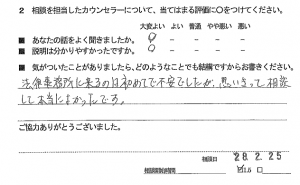 2 相談を担当したカウンセラーについて、当てはまる評価に○をつけてください。
大変よい よい 普通 やや悪い 悪い
■ あなたの話をよく聞きましたか。
■ 説明は分かりやすかったですか。
■ 気がついたことがありましたら、どのようなことでも結構ですからお書きください。
法律事務所に来るのは初めてで不安でしたが、思いきって相談
して本当によかったです。
ご協力ありがとうございました。
相談日 28.2.25
相談開始時間